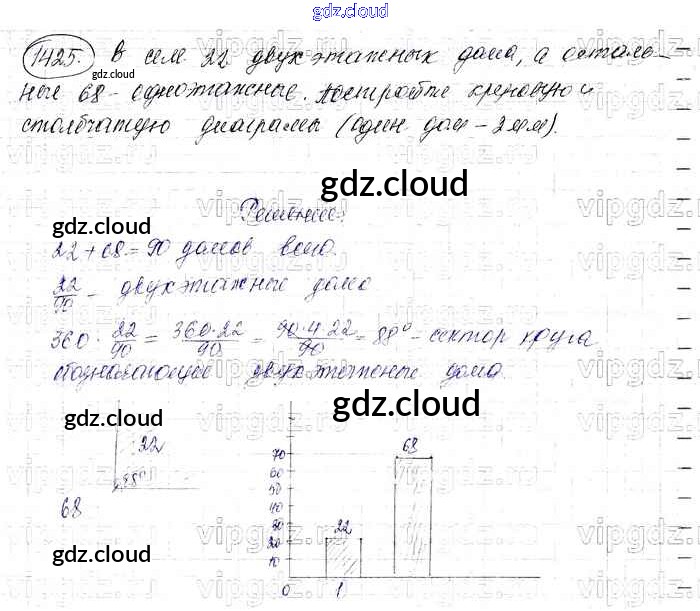 gdz.cloud
1425. В селе 22 двухэтажных дома, а осталь-
gdz.cloud
ные 68 - одноэтажные. Постройте круговую и
столбчатую диаграмы (один дом - 2 мм).
gdz.cloud
gdz.cloud
Решение:
22 + 68 = 90 домов всего.
22/90 - двухэтажные дома
360 · 22/90 = 360·22/90 = 90·4·22/90 = 88° - сектор круга
gdz.cloud
двухэтажные дома.
gdz.cloud
gdz.cloud
22
88°
68
gdz.cloud
68
70
60
50
40
30
20
10
22
0
1
gdz.cloud
gdz.cloud